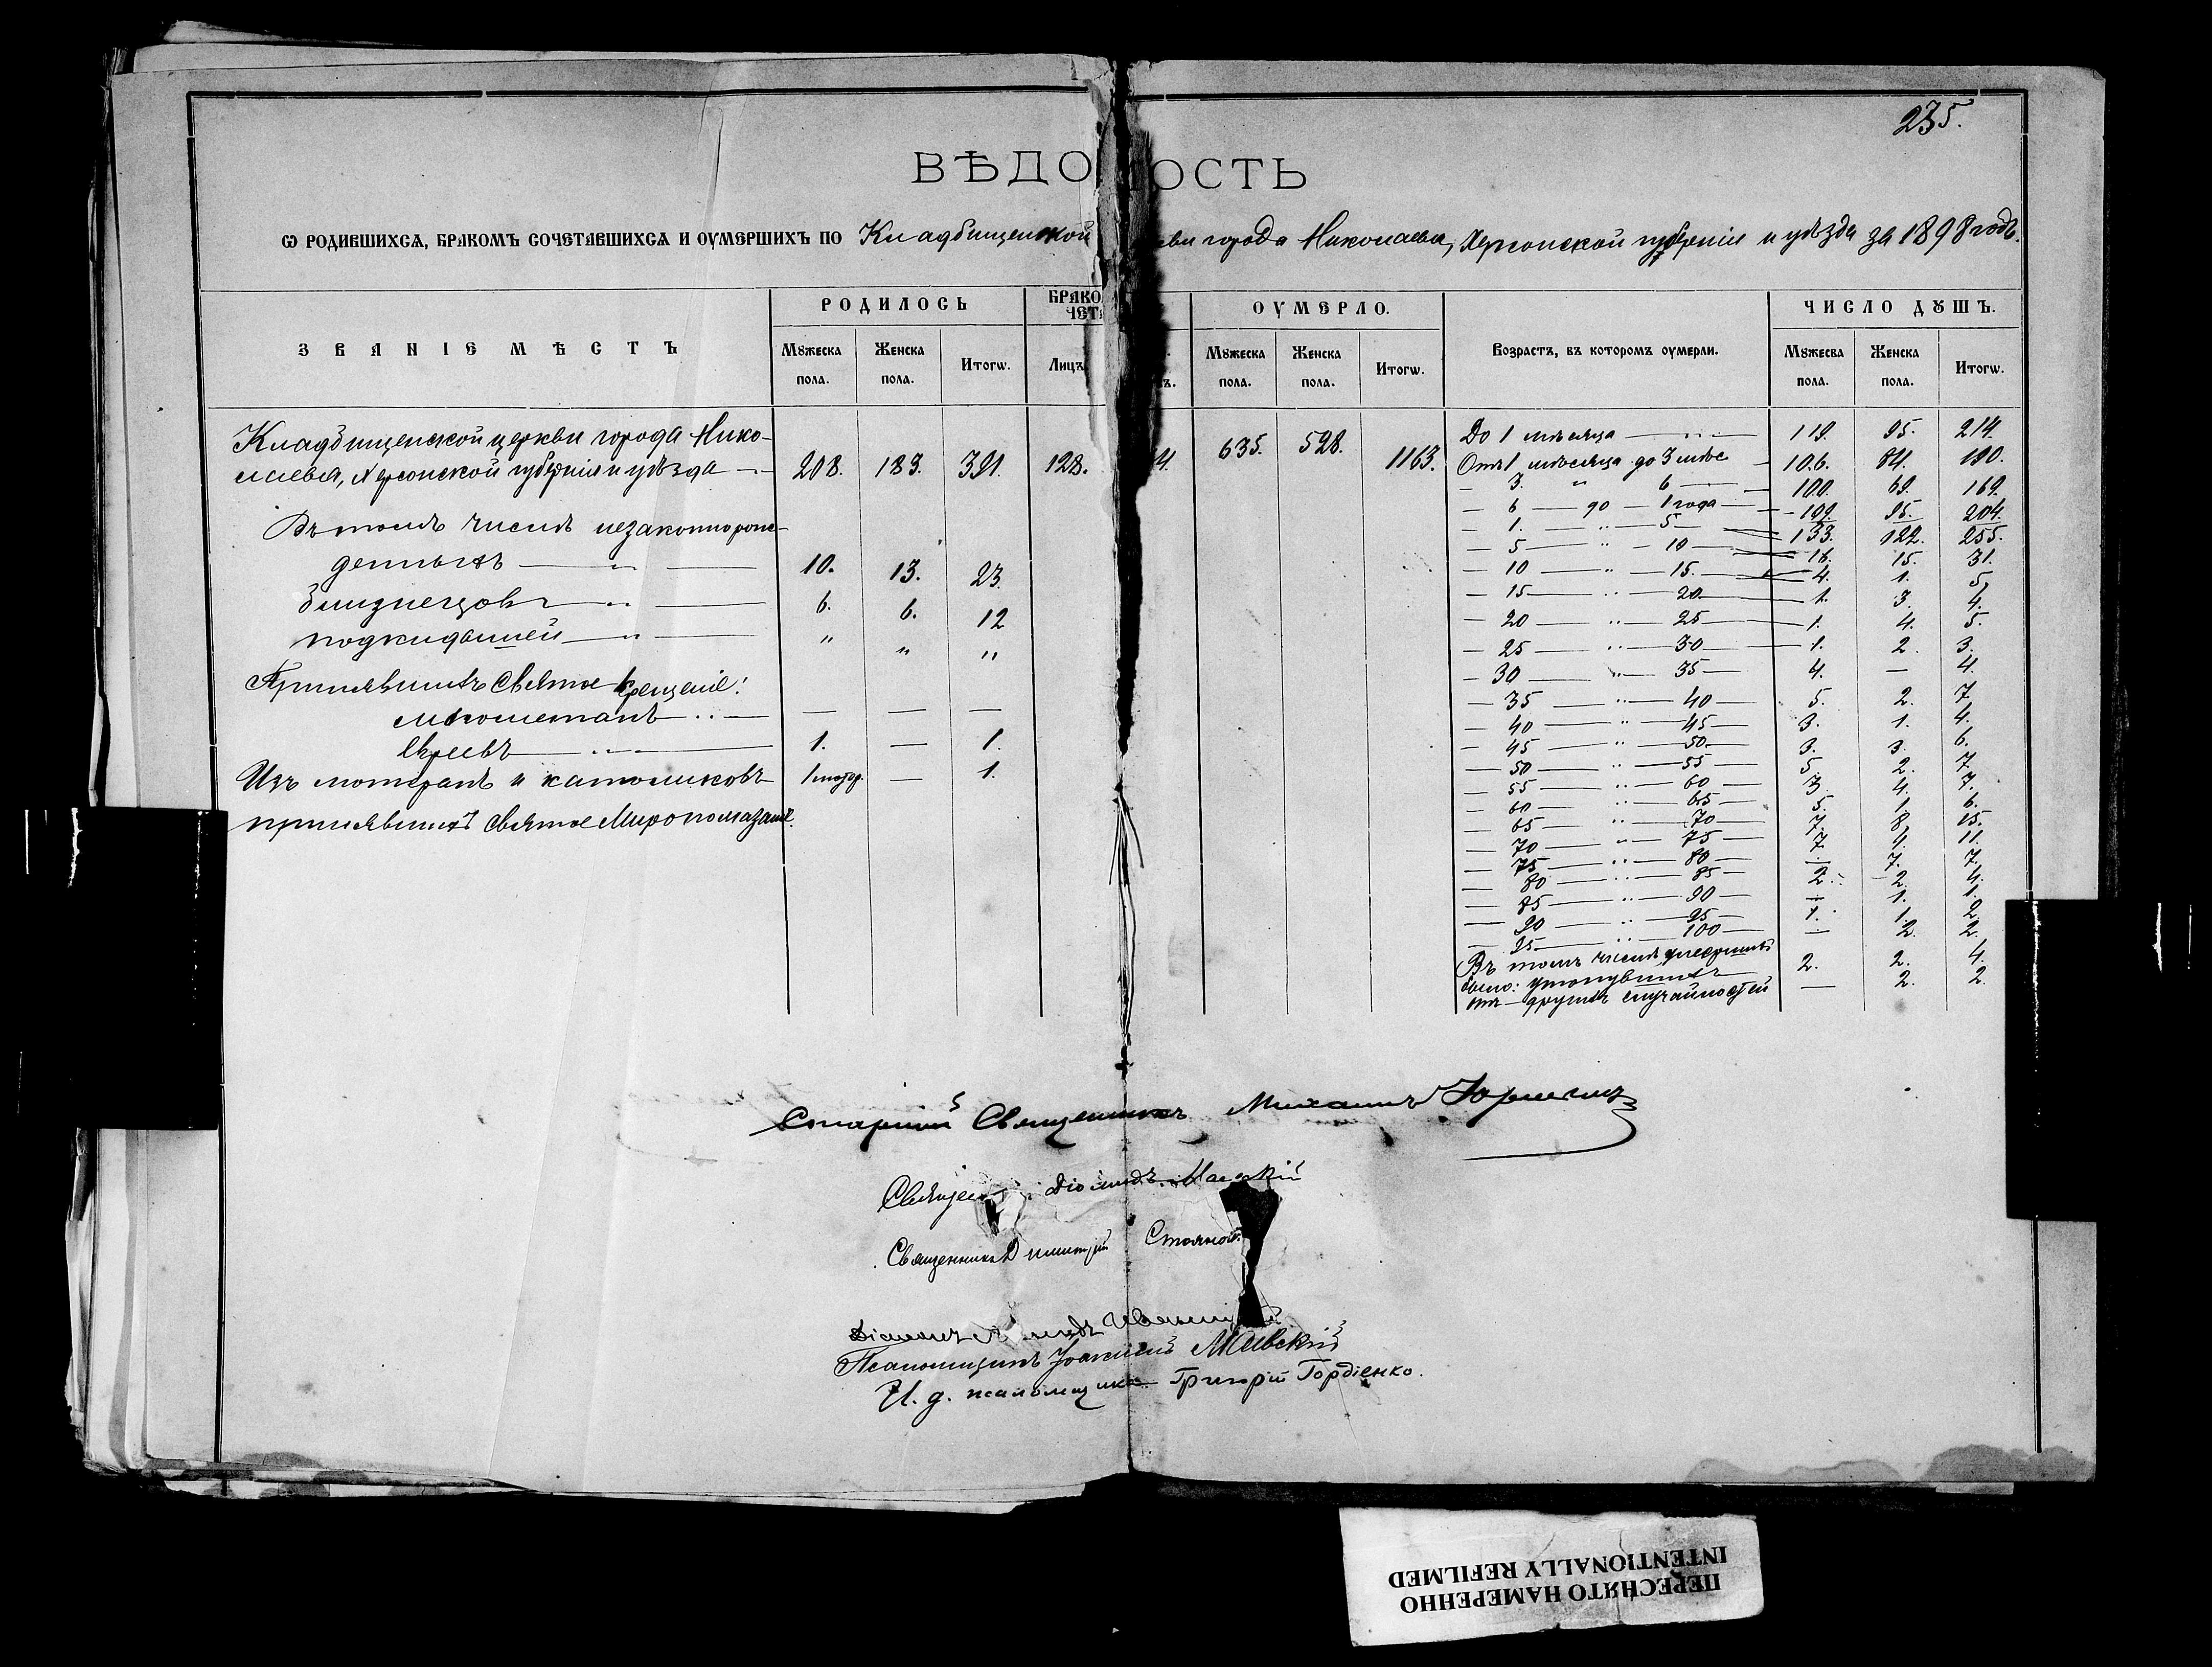 235.
ВѢДОМОСТЬ
Ѡ РОДИВШИХСѦ, БРАКОМЪ СОЧЕТАВШИХСѦ И ОУМЕРШИХЪ ПО Кладбищенской церкви города Николаева, Херсонской губерніи и уѣзда за 1898 годъ.
ЗВАНІЕ МѢСТЪ
РОДИЛОСЬ
ОУМЕРЛО.
Возрастъ, въ которомъ оумерли.
ЧИСЛО ДꙊШЪ.
Мꙋжеска пола. Женска пола. Итогѡ. Лицъ
Мꙋжеска пола. Женска пола. Итогѡ.
Мꙋжесва пола. Женска пола. Итогѡ.
Кладбищенской церкви города Нико-
лаева, Херсонской губерніи и уѣзда 208. 183. 391. 128. 635. 528. 1163.
Въ томъ числѣ незаконнорож-
денныхъ 10. 13. 23.
близнецовъ 6. 6. 12
подкидышей " " "
Принявшихъ Святое Крещеніе:
магометанъ — — —
Евреевъ 1. — 1.
Изъ лютеранъ и католиковъ 1 — 1.
принявшихъ Святое Миропомазаніе.
До 1 мѣсяца 119. 95. 214.
Отъ 1 мѣсяца до 3 мѣс 106. 84. 190.
— 3. " 6 — 100. 69. 169.
— 6 — до — 1 года 109. 95. 204.
— 1. — " — 5 — 133. 122. 255.
— 5 — " — 10 — 16. 15. 31.
— 10 — " — 15. — 4. 1. 5.
— 15 — " — 20. — 1. 3. 4.
— 20 — " — 25 — 1. 4. 5.
— 25 — " — 30 — 1. 2. 3.
— 30 — " — 35 — 4. — 4.
— 35 — " — 40 — 5. 2. 7
— 40 — " — 45 — 3. 1. 4.
— 45 — " — 50. — 3. 3. 6.
— 50 — " — 55 — 5 2. 7
— 55 — " — 60 — 3. 4. 7.
— 60 — " — 65 — 5. 1. 6.
— 65 — " — 70 — 7. 8. 15.
— 70 — " — 75 — 7 4. 11.
— 75 — " — 80 — — 7. 7.
— 80 — " — 85 — 2. 2. 4.
— 85 — " — 90 — — 1. 1.
— 90 — " — 95 — 1. 1. 2.
— 95 — " — 100 — — 2. 2.
Въ томъ числѣ умершихъ
было: утонувшихъ 2. 2. 4.
отъ другихъ случайностей — 2. 2.
Старшій Священникъ Михаилъ
Священникъ
Священникъ Димитрій Стояновъ.
Діаконъ
Псаломщикъ Іоакимъ
И. д. псаломщика Григорій Гордіенко.
ПЕРЕСНЯТО НАМЕРЕННО
INTENTIONALLY REFILMED